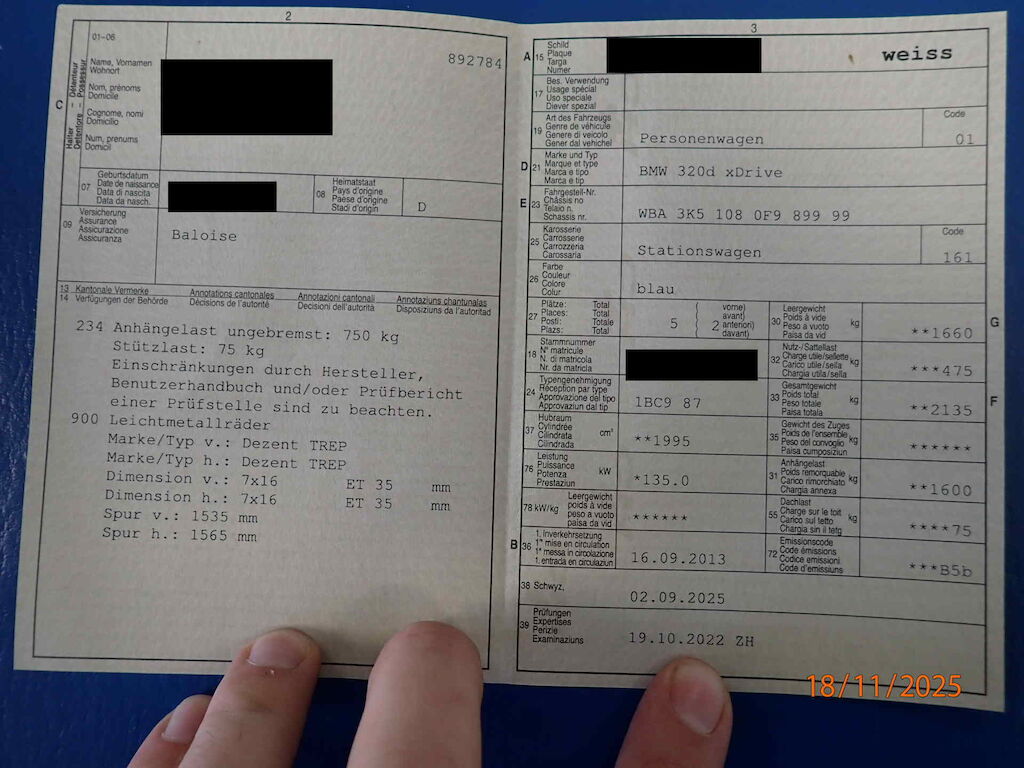 2
01-06
892784
C
Halter – Détenteur
Detentore – Possessur
Name, Vornamen
Wohnort
Nom, prénoms
Domicile
Cognome, nomi
Domicilio
Num, prenums
Domicil
07
Geburtsdatum
Date de naissance
Data di nascita
Data da nasch.
08
Heimatstaat
Pays d'origine
Paese d'origine
Stadi d'origin
D
09
Versicherung
Assurance
Assicurazione
Assicuranza
Baloise
13 Kantonale Vermerke Annotations cantonales Annotazioni cantonali Annotaziuns chantunalas
14 Verfügungen der Behörde Décisions de l'autorité Decisioni dell'autorità Disposiziuns da l'autoritad
234 Anhängelast ungebremst: 750 kg
Stützlast: 75 kg
Einschränkungen durch Hersteller,
Benutzerhandbuch und/oder Prüfbericht
einer Prüfstelle sind zu beachten.
900 Leichtmetallräder
Marke/Typ v.: Dezent TREP
Marke/Typ h.: Dezent TREP
Dimension v.: 7x16 ET 35 mm
Dimension h.: 7x16 ET 35 mm
Spur v.: 1535 mm
Spur h.: 1565 mm
3
A 15
Schild
Plaque
Targa
Numer
weiss
17
Bes. Verwendung
Usage spécial
Uso speciale
Diever spezial
19
Art des Fahrzeugs
Genre de véhicule
Genere di veicolo
Gener dal vehichel
Personenwagen
Code
01
D 21
Marke und Typ
Marque et type
Marca e tipo
Marca e tip
BMW 320d xDrive
E 23
Fahrgestell-Nr.
Châssis no
Telaio n.
Schassis nr.
WBA 3K5 108 0F9 899 99
25
Karosserie
Carrosserie
Carrozzeria
Carossaria
Stationswagen
Code
161
26
Farbe
Couleur
Colore
Colur
blau
27
Plätze: Total
Places: Total
Posti: Totale
Plazs: Total
5
( 2
vorne)
avant)
anteriori)
davant)
30
Leergewicht
Poids à vide
Peso a vuoto
Paisa da vid
kg
**1660
G
18
Stammnummer
N° matricule
N. di matricola
Nr. da matricla
32
Nutz-/Sattellast
Charge utile/sellette
Carico utile/sella
Chargia utila/sella
kg
***475
24
Typengenehmigung
Réception par type
Approvazione del tipo
Approvaziun dal tip
1BC9 87
33
Gesamtgewicht
Poids total
Peso totale
Paisa totala
kg
**2135
F
37
Hubraum
Cylindrée
Cilindrata
Cilindrada
cm³
**1995
35
Gewicht des Zuges
Poids de l'ensemble
Peso del convoglio
Paisa cumposiziun
kg
******
76
Leistung
Puissance
Potenza
Prestaziun
kW
*135.0
31
Anhängelast
Poids remorquable
Carico rimorchiato
Chargia annexa
kg
**1600
78 kW/kg
Leergewicht
poids à vide
peso a vuoto
paisa da vid
******
55
Dachlast
Charge sur le toit
Carico sul tetto
Chargia sin il tetg
kg
****75
B 36
1. Inverkehrsetzung
1re mise en circulation
1a messa in circolazione
1. entrada en circulaziun
16.09.2013
72
Emissionscode
Code émissions
Codice emissioni
Code d'emissiuns
***B5b
38 Schwyz,
02.09.2025
39
Prüfungen
Expertises
Perizie
Examinaziuns
19.10.2022 ZH
18/11/2025